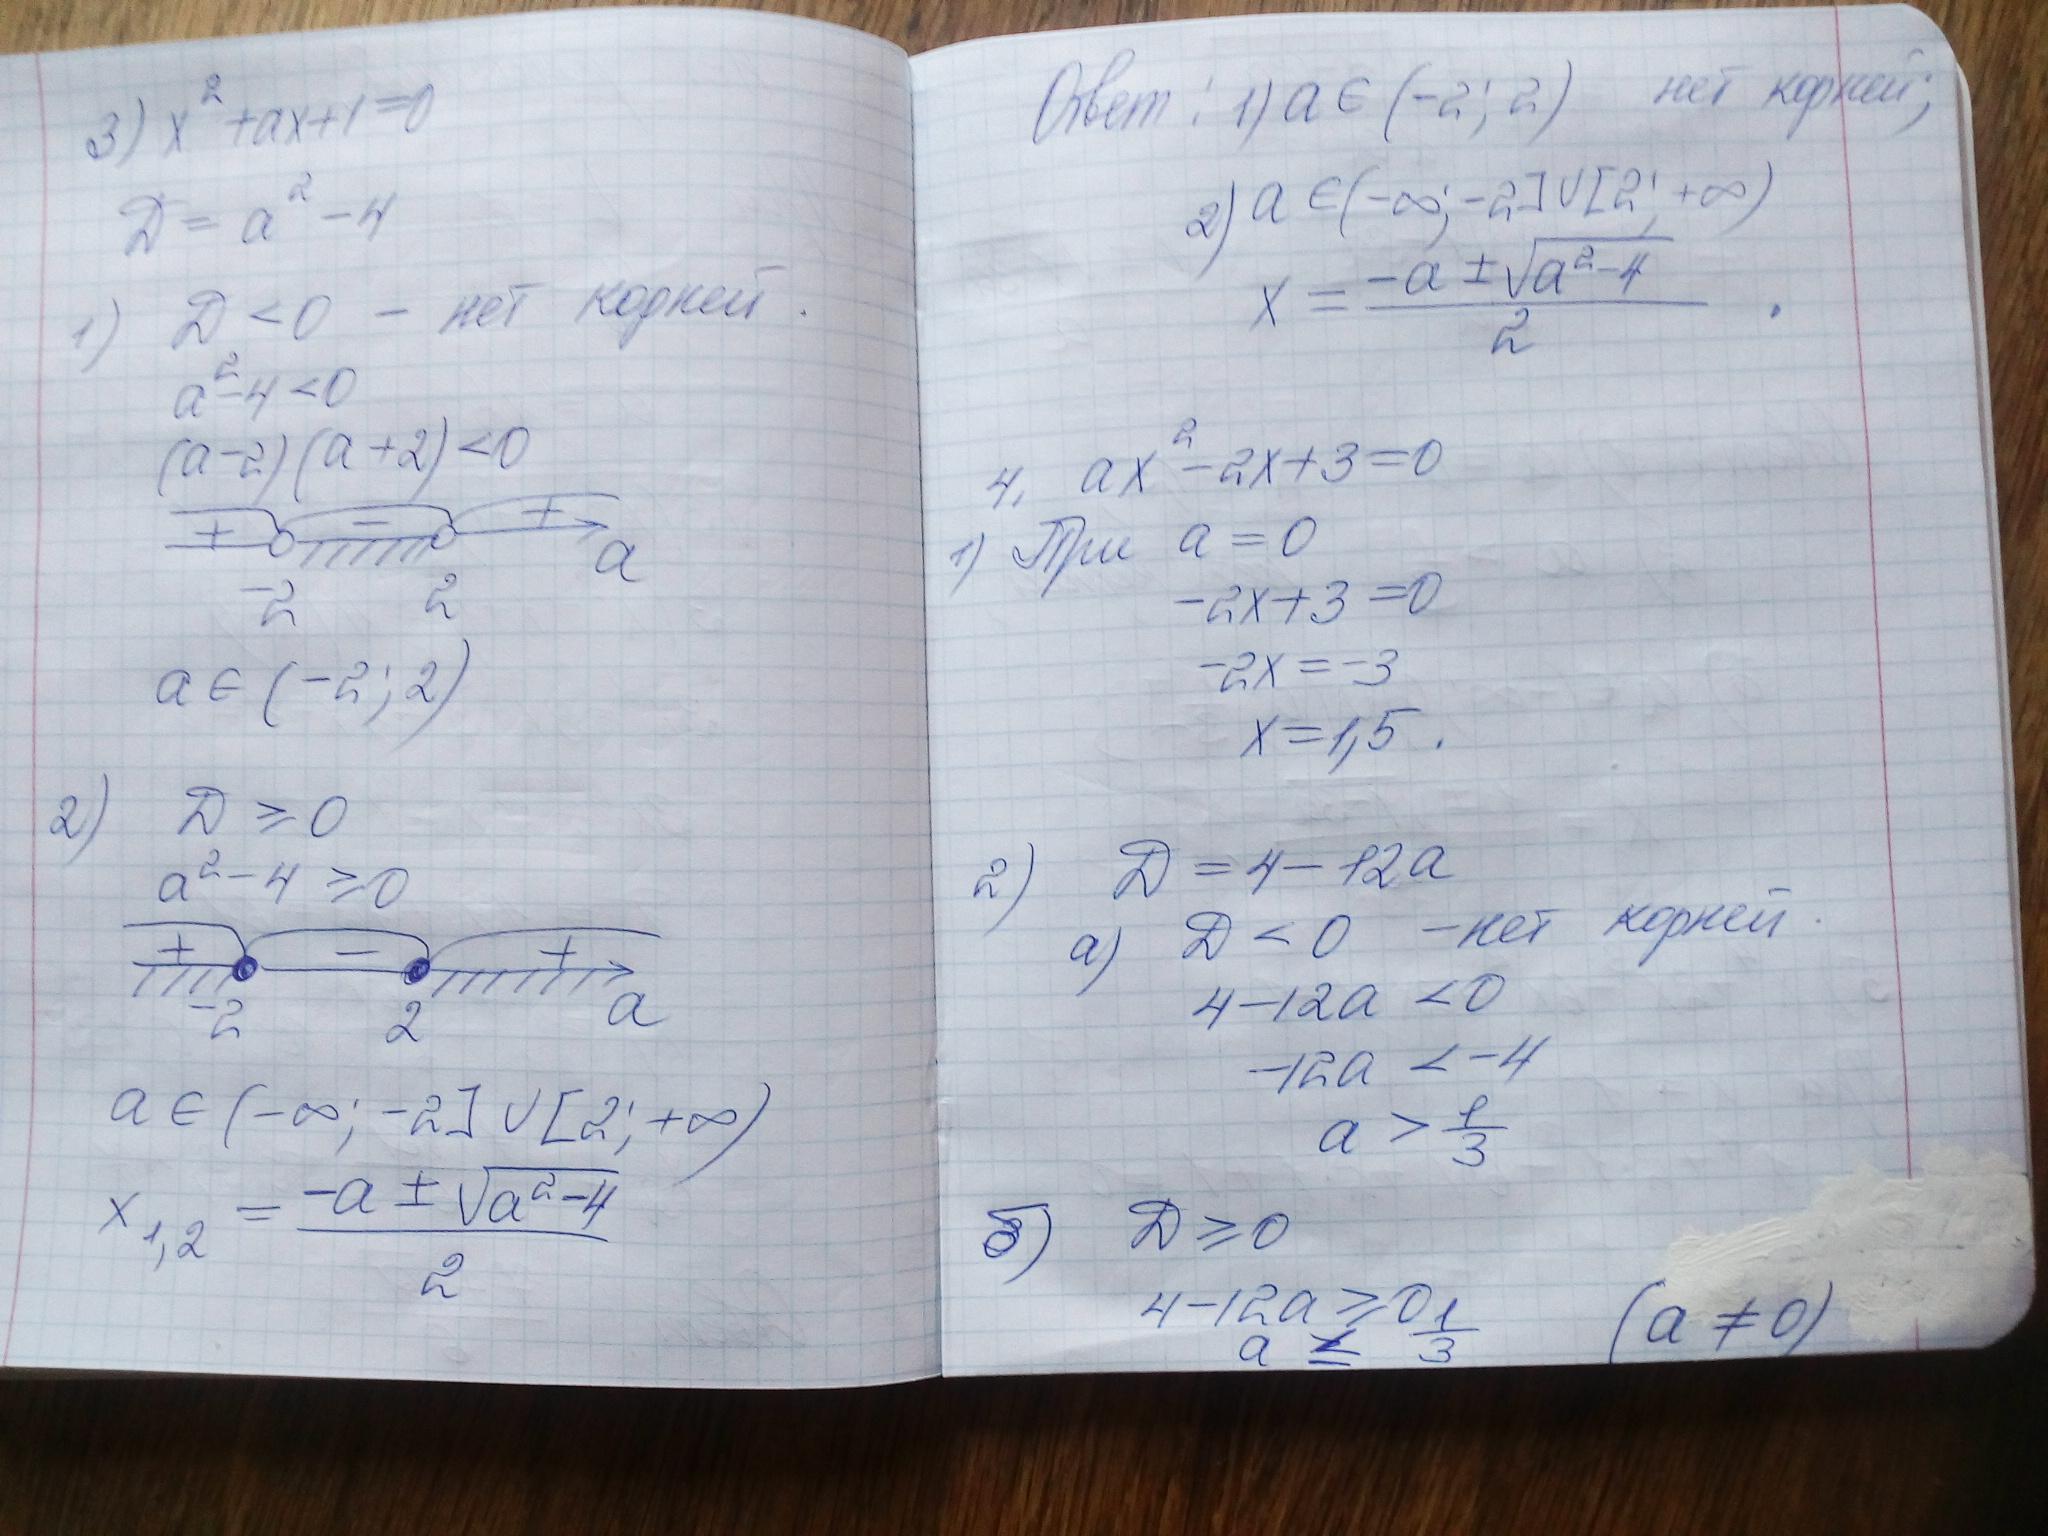 3) x² + ax + 1 = 0
D = a² - 4
1) D < 0 - нет корней.
a² - 4 < 0
(a - 2)(a + 2) < 0
+ - +
-2 2 a
a ∈ (-2; 2)
2) D ≥ 0
a² - 4 ≥ 0
+ - +
-2 2 a
a ∈ (-∞; -2] ∪ [2; +∞)
x₁,₂ = (-a ± √(a² - 4)) / 2
Ответ: 1) a ∈ (-2; 2) нет корней;
2) a ∈ (-∞; -2] ∪ [2; +∞)
x = (-a ± √(a² - 4)) / 2 .
4. ax² - 2x + 3 = 0
1) При a = 0
-2x + 3 = 0
-2x = -3
x = 1,5.
2) D = 4 - 12a
а) D < 0 - нет корней.
4 - 12a < 0
-12a < -4
a > 1/3
б) D ≥ 0
4 - 12a ≥ 0
a ≤ 1/3 (a ≠ 0)